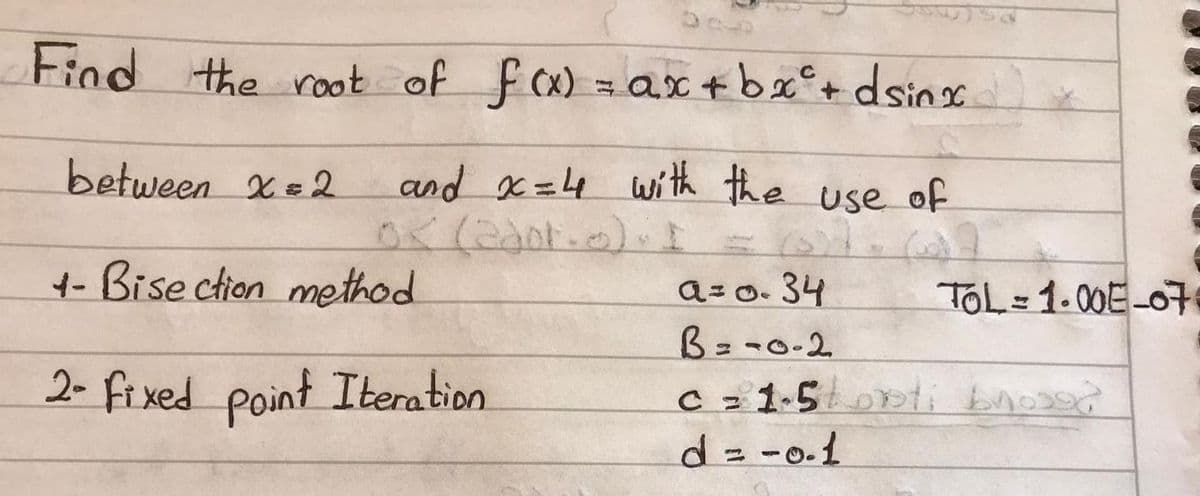 Find the root of f(x) = ax + bx^c + d sin x
between x = 2 and x = 4 with the use of
1- Bisection method a = 0.34 TOL = 1.00E-07
B = -0.2
2- fixed point Iteration c = 1.5
d = -0.1